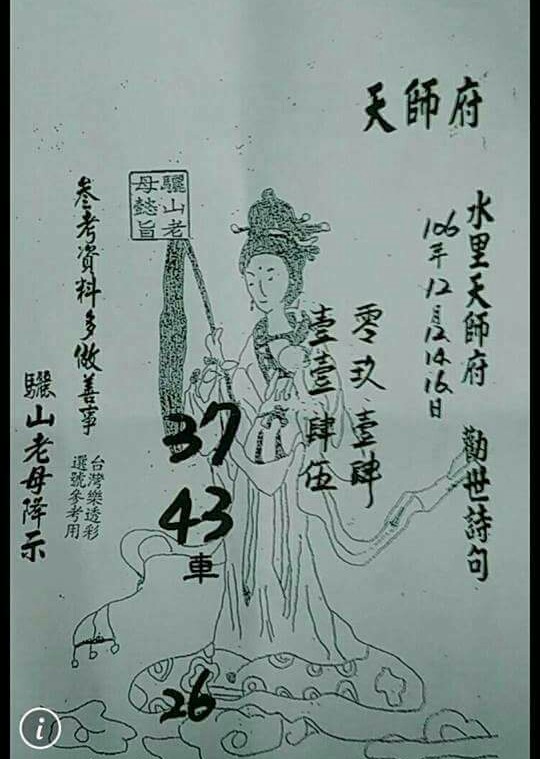 天師府
水里天師府 勸世詩句
106年12月12.14.16.日
零玖壹肆
壹壹肆伍
驪山老
母懿旨
37
43
車
26
參考資料多做善事
台灣樂透彩
選號參考用
驪山老母降示